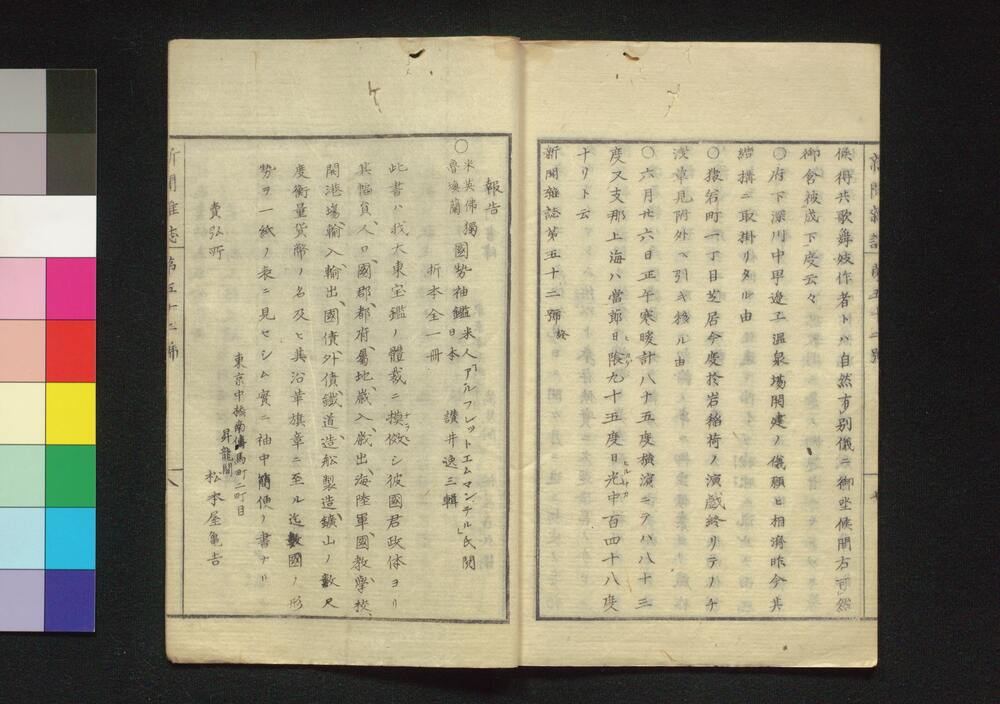 候得共歌舞妓作者トハ自然有別儀ニ御坐候間右可然
御含被成下度云々
〇府下深川中甲邉エ温泉場開建ノ儀願ヒ相濟昨今其
結構ニ取掛リタル由
〇猿若町一丁目芝居今度於岩稲荷ノ演戯終リテノチ
浅草見附外ヘ引キ移ル由
〇六月廿六日正午寒暖計八十五度横濱ニテハ八十三
度又支那上海ハ當節日陰九十五度日光中百四十八度
ヒカゲ
ヒナタ
十リト云
新聞雑誌第五十二號終
新聞雑誌 第五十二號
報告
〇米英佛獨魯墺蘭國勢袖鑑 米人「アルフレットエムマンチル」氏閲
日本 讃井逸三輯
折本全一冊
此書ハ我大東宝鑑ノ體裁ニ摸倣シ彼國君政体ヨリ
ナラヘ
其幅員、人口、國郡、都府、屬地、歳入、歳出、海陸軍、國教、學校、
開港塲、輸入、輸出、國債、外債、鐵道、造舩、製造、鑛山ノ數尺
度衡量貨幣ノ名及ヒ其沿革旗章ニ至ル迄數國ノ形
勢ヲ一紙ノ表ニ見セシム實ニ袖中簡便ノ書ナリ
東京中橋南傳馬町二町目
賣弘所 昇龍閣 松本屋亀吉
新聞雑誌 第五十二號 八